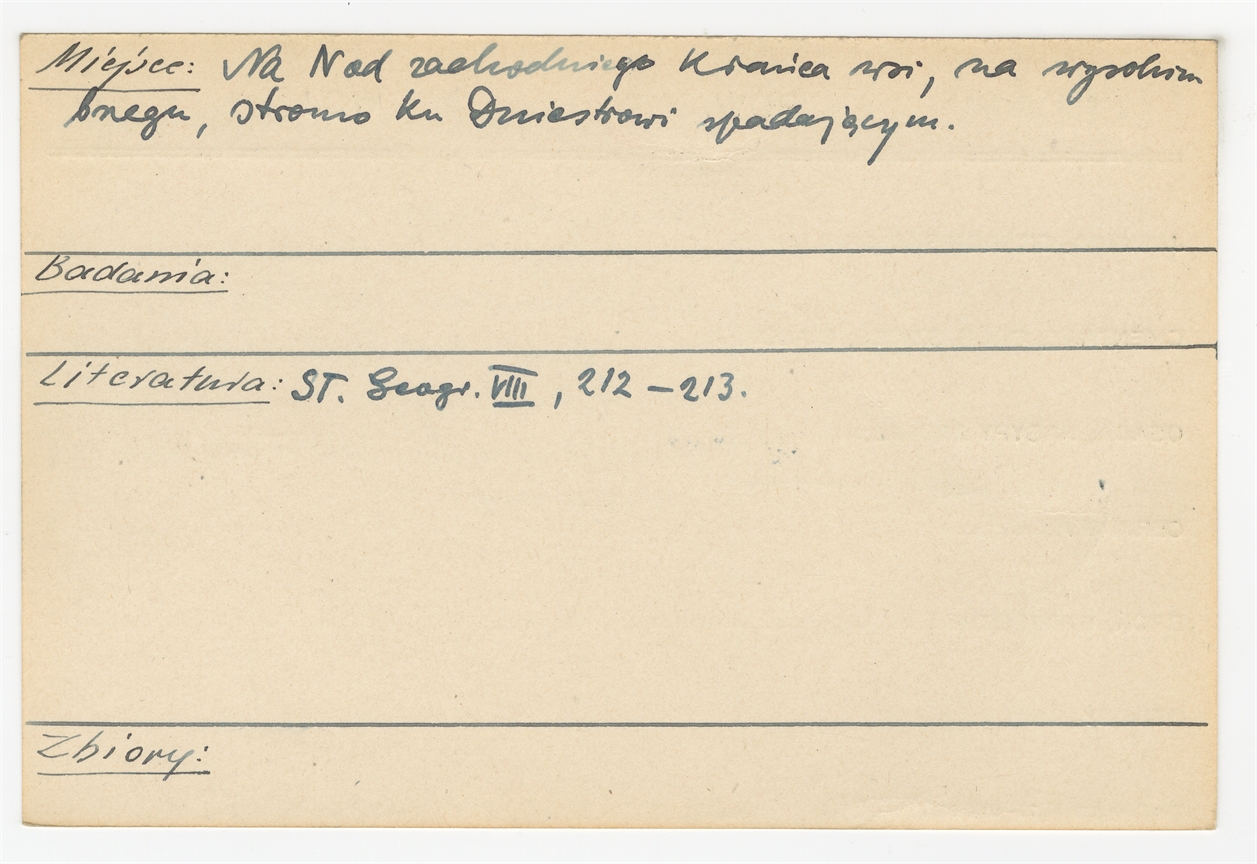 Miejsce: Na N od zachodniego krańca wsi, na wysokim
brzegu, stromo ku Dniestrowi spadającym.
Badania:
Literatura: ST. Geogr. VIII, 212 – 213.
Zbiory: